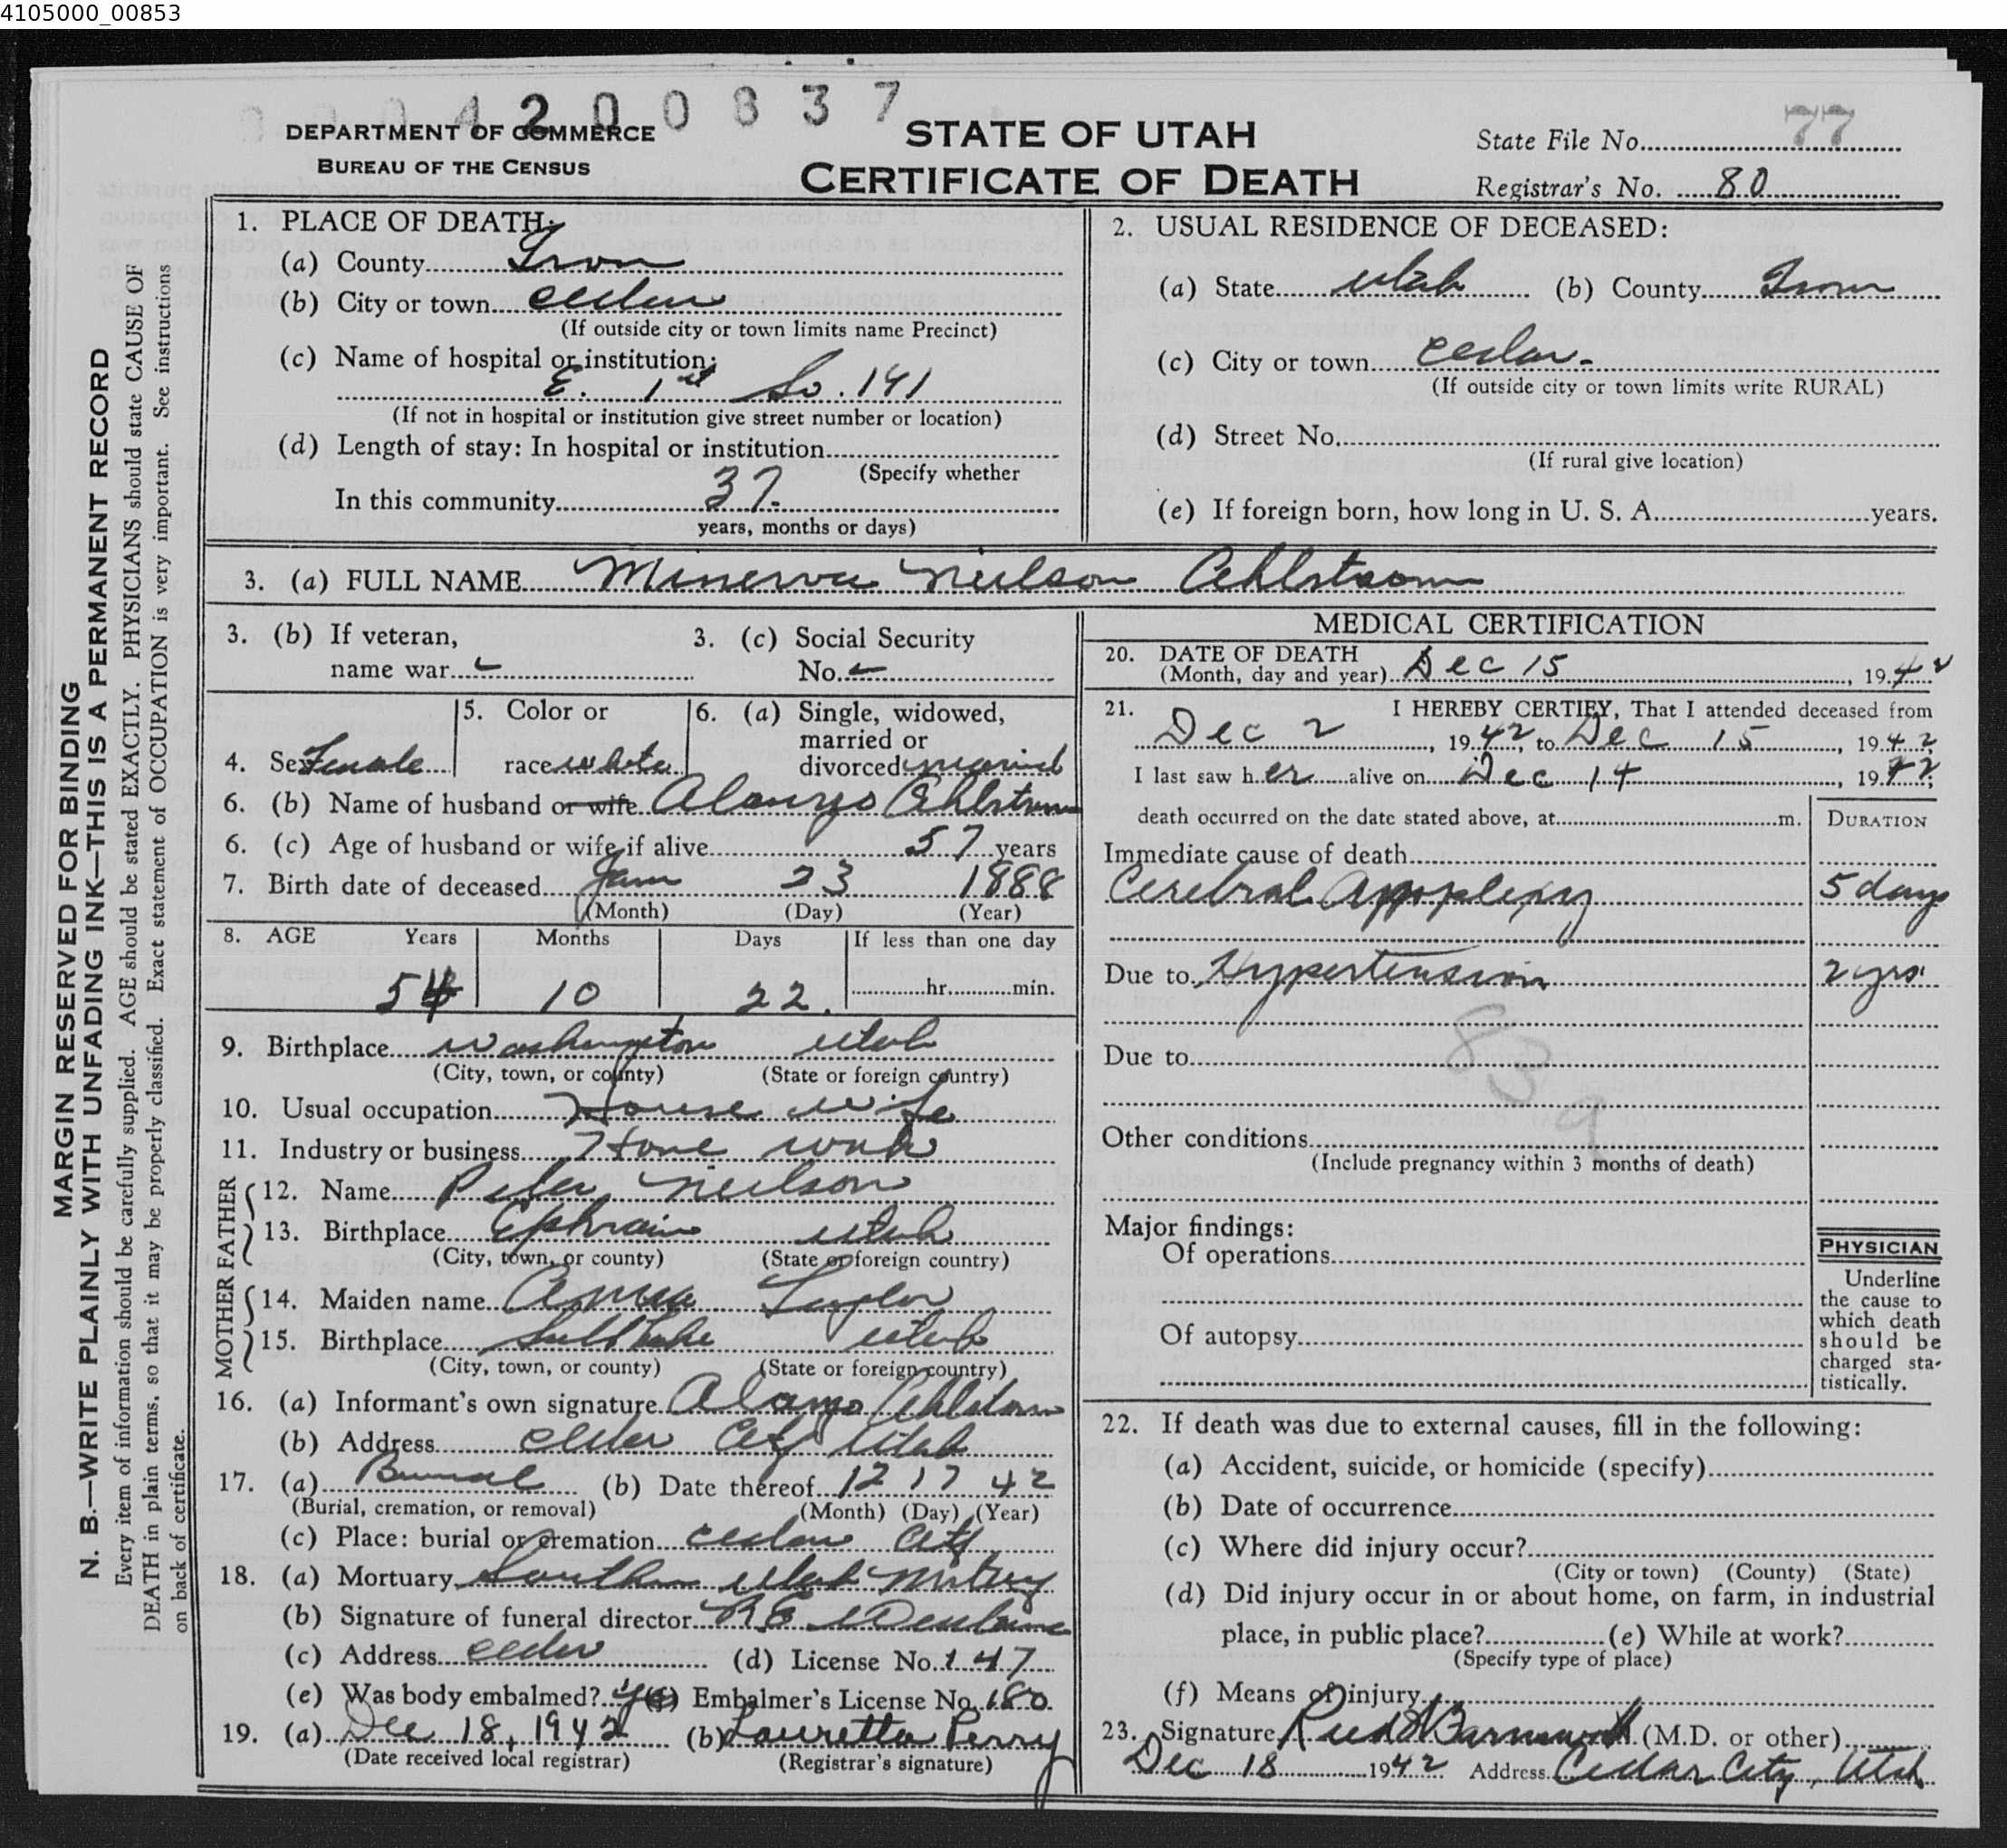 4105000_00853
0004200837
DEPARTMENT OF COMMERCE
BUREAU OF THE CENSUS
STATE OF UTAH
CERTIFICATE OF DEATH
State File No. 77
Registrar's No. 80
MARGIN RESERVED FOR BINDING
N. B.—WRITE PLAINLY WITH UNFADING INK—THIS IS A PERMANENT RECORD
Every item of information should be carefully supplied. AGE should be stated EXACTLY. PHYSICIANS should state CAUSE OF
DEATH in plain terms, so that it may be properly classified. Exact statement of OCCUPATION is very important. See instructions
on back of certificate.
1. PLACE OF DEATH:
(a) County Iron
(b) City or town Cedar
(If outside city or town limits name Precinct)
(c) Name of hospital or institution:
E. 1st So. 141
(If not in hospital or institution give street number or location)
(d) Length of stay: In hospital or institution
(Specify whether
In this community 37
years, months or days)
2. USUAL RESIDENCE OF DECEASED:
(a) State Utah (b) County Iron
(c) City or town Cedar
(If outside city or town limits write RURAL)
(d) Street No.
(If rural give location)
(e) If foreign born, how long in U. S. A. years.
3. (a) FULL NAME Minerva Neilson Ahlstrom
3. (b) If veteran,
name war
3. (c) Social Security
No.
4. Sex Female
5. Color or
race white
6. (a) Single, widowed,
married or
divorced married
6. (b) Name of husband or wife Alonzo Ahlstrom
6. (c) Age of husband or wife if alive 57 years
7. Birth date of deceased Jan 23 1888
(Month) (Day) (Year)
8. AGE Years Months Days If less than one day
54 10 22 hr. min.
9. Birthplace Washington Utah
(City, town, or county) (State or foreign country)
10. Usual occupation House wife
11. Industry or business Home work
FATHER
12. Name Peter Neilson
13. Birthplace Ephraim Utah
(City, town, or county) (State or foreign country)
MOTHER
14. Maiden name Anna Taylor
15. Birthplace Salt Lake Utah
(City, town, or county) (State or foreign country)
16. (a) Informant's own signature Alonzo Ahlstrom
(b) Address Cedar City Utah
17. (a) Burial (b) Date thereof 12 17 42
(Burial, cremation, or removal) (Month) (Day) (Year)
(c) Place: burial or cremation Cedar City
18. (a) Mortuary Southern Utah Mortuary
(b) Signature of funeral director
(c) Address Cedar (d) License No. 147
(e) Was body embalmed? Yes Embalmer's License No. 180
19. (a) Dec 18, 1942 (b) Lauretta Perry
(Date received local registrar) (Registrar's signature)
MEDICAL CERTIFICATION
20. DATE OF DEATH
(Month, day and year) Dec 15, 1942
21. I HEREBY CERTIFY, That I attended deceased from
Dec 2, 1942, to Dec 15, 1942,
I last saw her alive on Dec 14, 1942,
death occurred on the date stated above, at m. DURATION
Immediate cause of death
Cerebral Appoplexy 5 days
Due to Hypertension 2 yrs.
83
a
Due to
Other conditions
(Include pregnancy within 3 months of death)
Major findings:
Of operations
Of autopsy
PHYSICIAN
Underline
the cause to
which death
should be
charged sta-
tistically.
22. If death was due to external causes, fill in the following:
(a) Accident, suicide, or homicide (specify)
(b) Date of occurrence
(c) Where did injury occur?
(City or town) (County) (State)
(d) Did injury occur in or about home, on farm, in industrial
place, in public place? (e) While at work?
(Specify type of place)
(f) Means of injury
23. Signature (M.D. or other)
Dec 18 1942 Address Cedar City, Utah